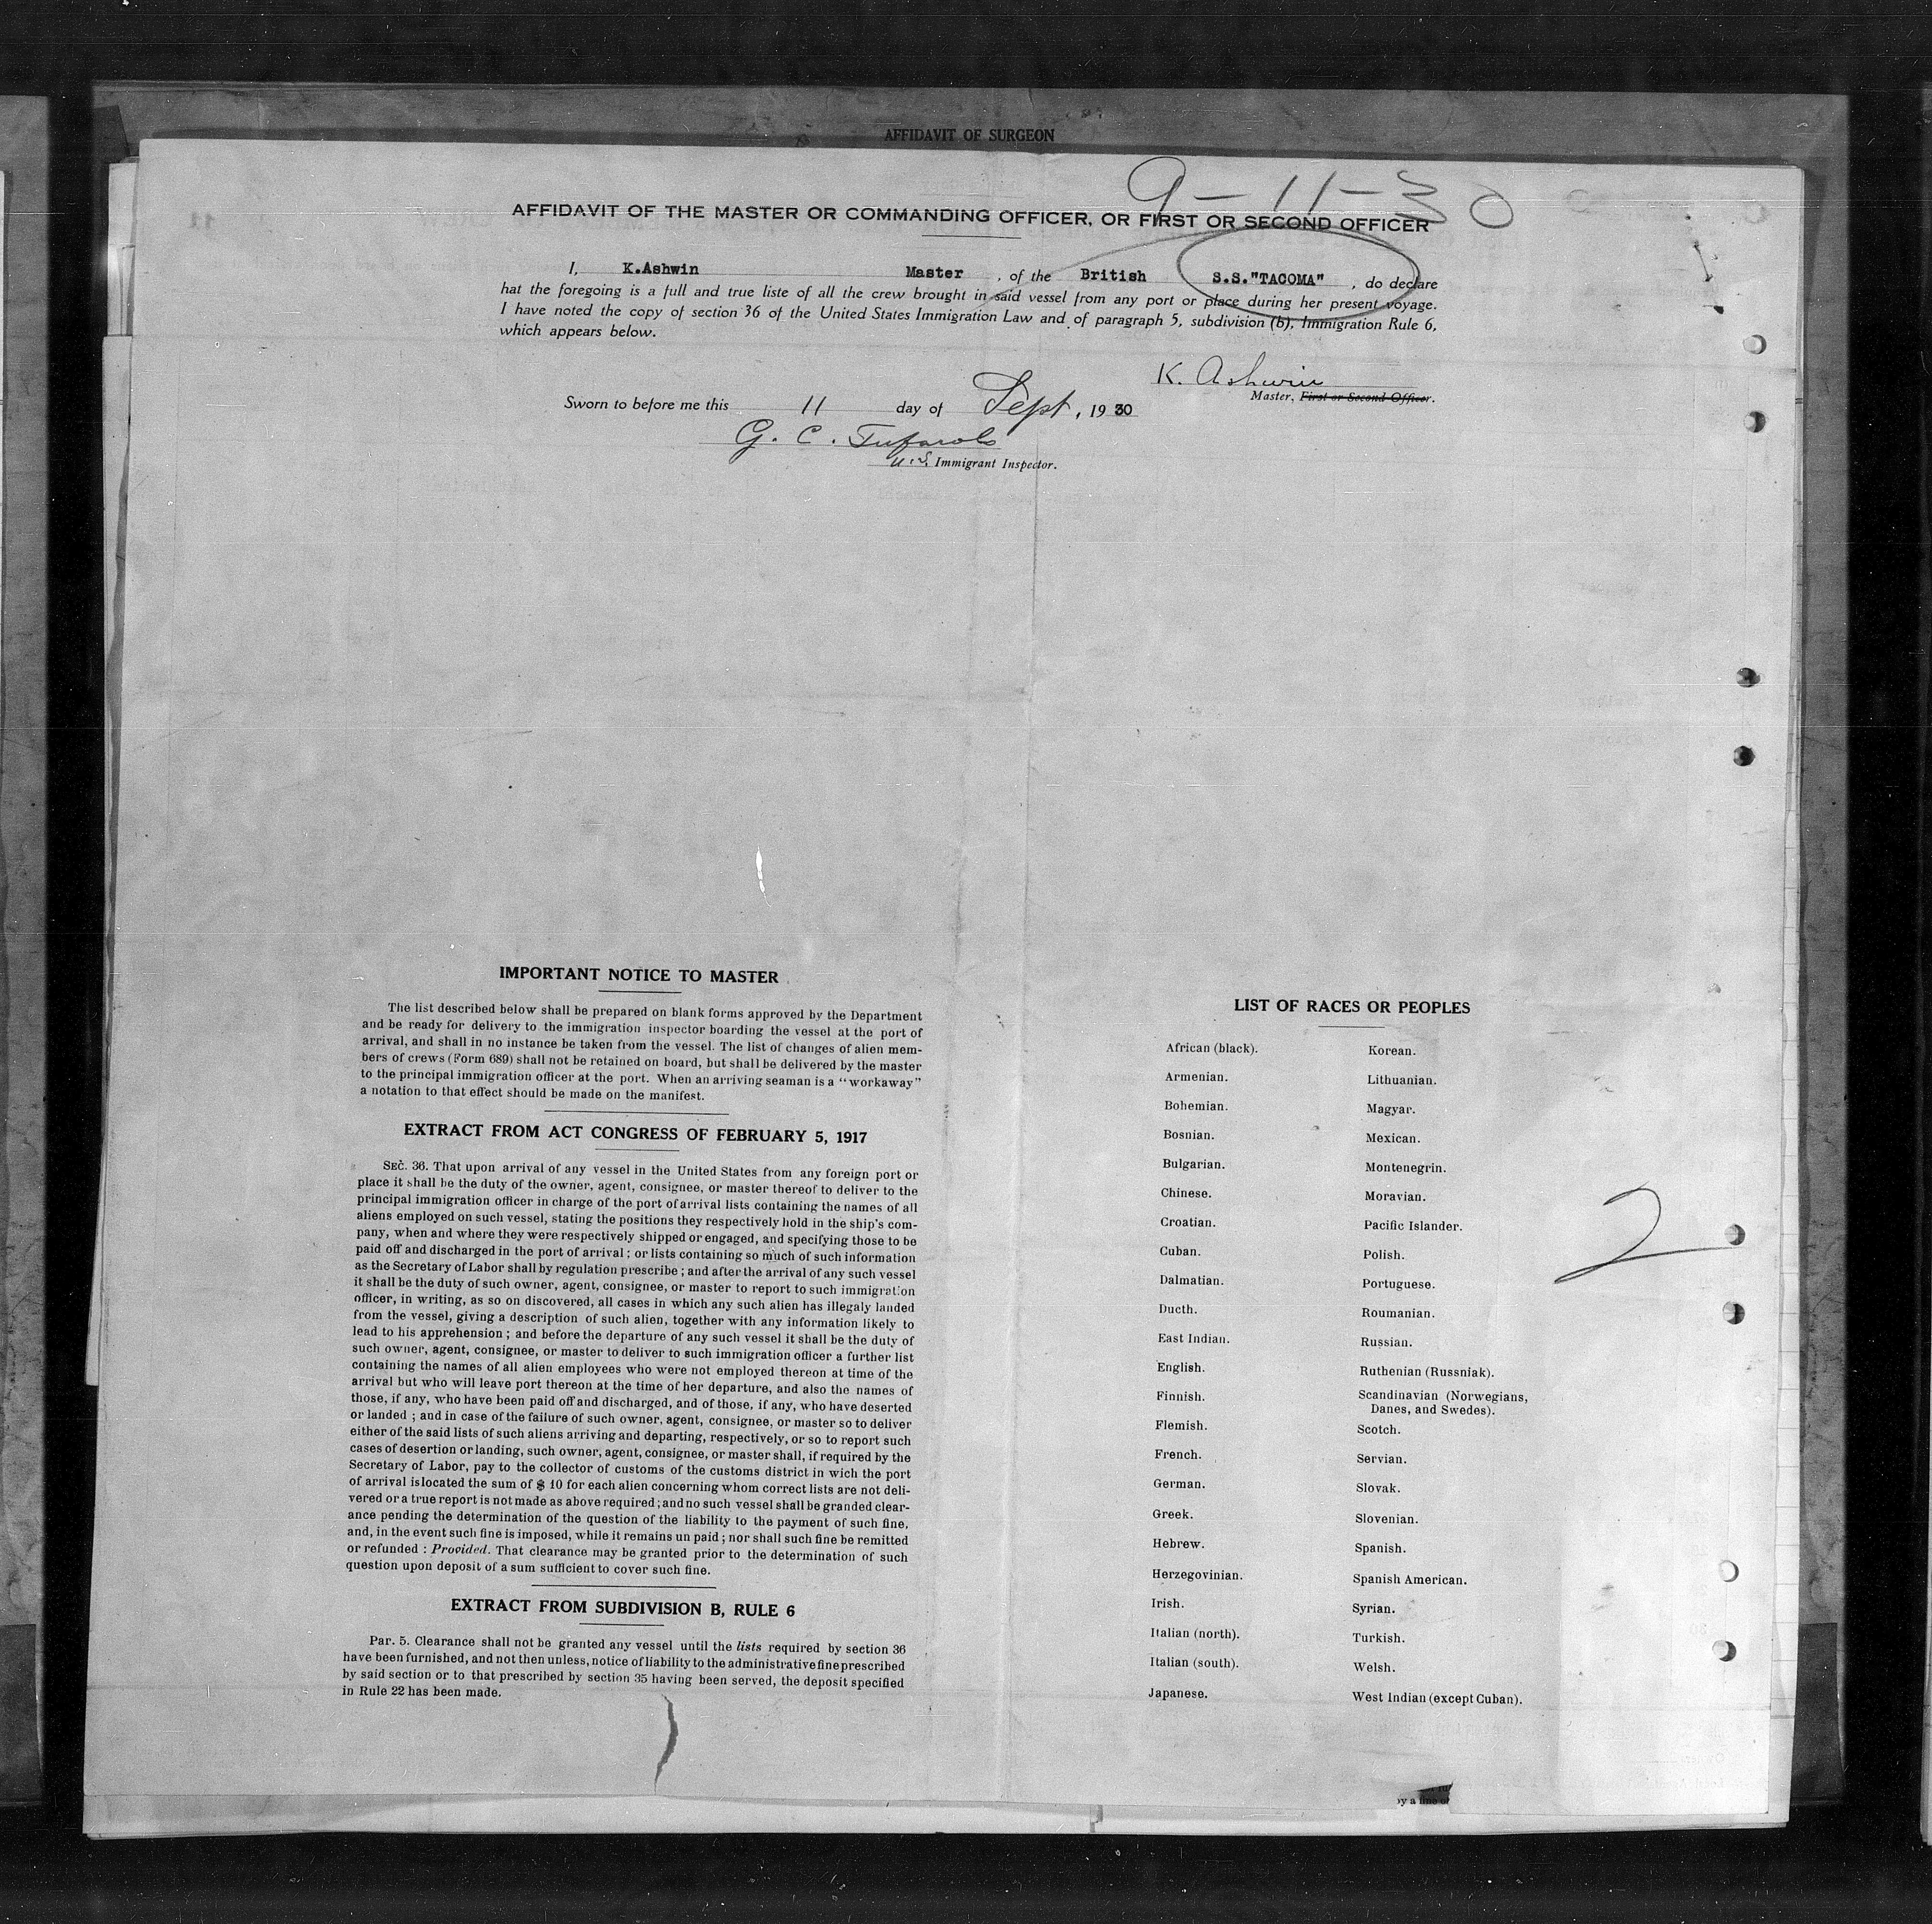 AFFIDAVIT OF SURGEON
9-11-30
AFFIDAVIT OF THE MASTER OR COMMANDING OFFICER, OR FIRST OR SECOND OFFICER
I, K.Ashwin Master , of the British S.S."TACOMA" , do declare
hat the foregoing is a full and true liste of all the crew brought in said vessel from any port or place during her present voyage.
I have noted the copy of section 36 of the United States Immigration Law and of paragraph 5, subdivision (b), Immigration Rule 6,
which appears below.
K. Ashwin
Master, First or Second Officer.
Sworn to before me this 11 day of Sept, 1930
G. C.
U.S. Immigrant Inspector.
IMPORTANT NOTICE TO MASTER
The list described below shall be prepared on blank forms approved by the Department
and be ready for delivery to the immigration inspector boarding the vessel at the port of
arrival, and shall in no instance be taken from the vessel. The list of changes of alien mem-
bers of crews (Form 689) shall not be retained on board, but shall be delivered by the master
to the principal immigration officer at the port. When an arriving seaman is a "workaway"
a notation to that effect should be made on the manifest.
EXTRACT FROM ACT CONGRESS OF FEBRUARY 5, 1917
SEC. 36. That upon arrival of any vessel in the United States from any foreign port or
place it shall be the duty of the owner, agent, consignee, or master thereof to deliver to the
principal immigration officer in charge of the port of arrival lists containing the names of all
aliens employed on such vessel, stating the positions they respectively hold in the ship's com-
pany, when and where they were respectively shipped or engaged, and specifying those to be
paid off and discharged in the port of arrival ; or lists containing so much of such information
as the Secretary of Labor shall by regulation prescribe ; and after the arrival of any such vessel
it shall be the duty of such owner, agent, consignee, or master to report to such immigration
officer, in writing, as so on discovered, all cases in which any such alien has illegaly landed
from the vessel, giving a description of such alien, together with any information likely to
lead to his apprehension ; and before the departure of any such vessel it shall be the duty of
such owner, agent, consignee, or master to deliver to such immigration officer a further list
containing the names of all alien employees who were not employed thereon at time of the
arrival but who will leave port thereon at the time of her departure, and also the names of
those, if any, who have been paid off and discharged, and of those, if any, who have deserted
or landed ; and in case of the failure of such owner, agent, consignee, or master so to deliver
either of the said lists of such aliens arriving and departing, respectively, or so to report such
cases of desertion or landing, such owner, agent, consignee, or master shall, if required by the
Secretary of Labor, pay to the collector of customs of the customs district in wich the port
of arrival islocated the sum of $ 10 for each alien concerning whom correct lists are not deli-
vered or a true report is not made as above required ; and no such vessel shall be granded clear-
ance pending the determination of the question of the liability to the payment of such fine,
and, in the event such fine is imposed, while it remains un paid ; nor shall such fine be remitted
or refunded : Provided. That clearance may be granted prior to the determination of such
question upon deposit of a sum sufficient to cover such fine.
EXTRACT FROM SUBDIVISION B, RULE 6
Par. 5. Clearance shall not be granted any vessel until the lists required by section 36
have been furnished, and not then unless, notice of liability to the administrative fine prescribed
by said section or to that prescribed by section 35 having been served, the deposit specified
in Rule 22 has been made.
LIST OF RACES OR PEOPLES
African (black).
Armenian.
Bohemian.
Bosnian.
Bulgarian.
Chinese.
Croatian.
Cuban.
Dalmatian.
Ducth.
East Indian.
English.
Finnish.
Flemish.
French.
German.
Greek.
Hebrew.
Herzegovinian.
Irish.
Italian (north).
Italian (south).
Japanese.
Korean.
Lithuanian.
Magyar.
Mexican.
Montenegrin.
Moravian.
Pacific Islander.
Polish.
Portuguese.
Roumanian.
Russian.
Ruthenian (Russniak).
Scandinavian (Norwegians,
Danes, and Swedes).
Scotch.
Servian.
Slovak.
Slovenian.
Spanish.
Spanish American.
Syrian.
Turkish.
Welsh.
West Indian (except Cuban).
2
by a line of